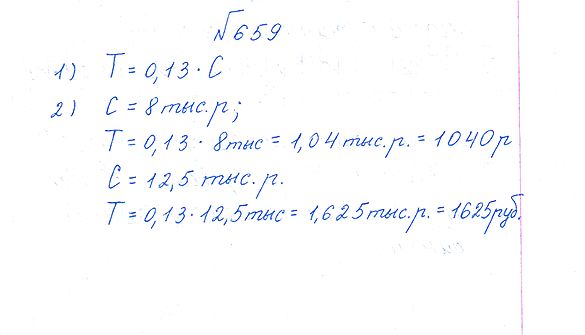 №659
1) T = 0,13 · C
2) C = 8 тыс.р;
T = 0,13 · 8тыс = 1,04 тыс.р. = 1040р
C = 12,5 тыс.р.
T = 0,13·12,5тыс = 1,625тыс.р. = 1625руб.